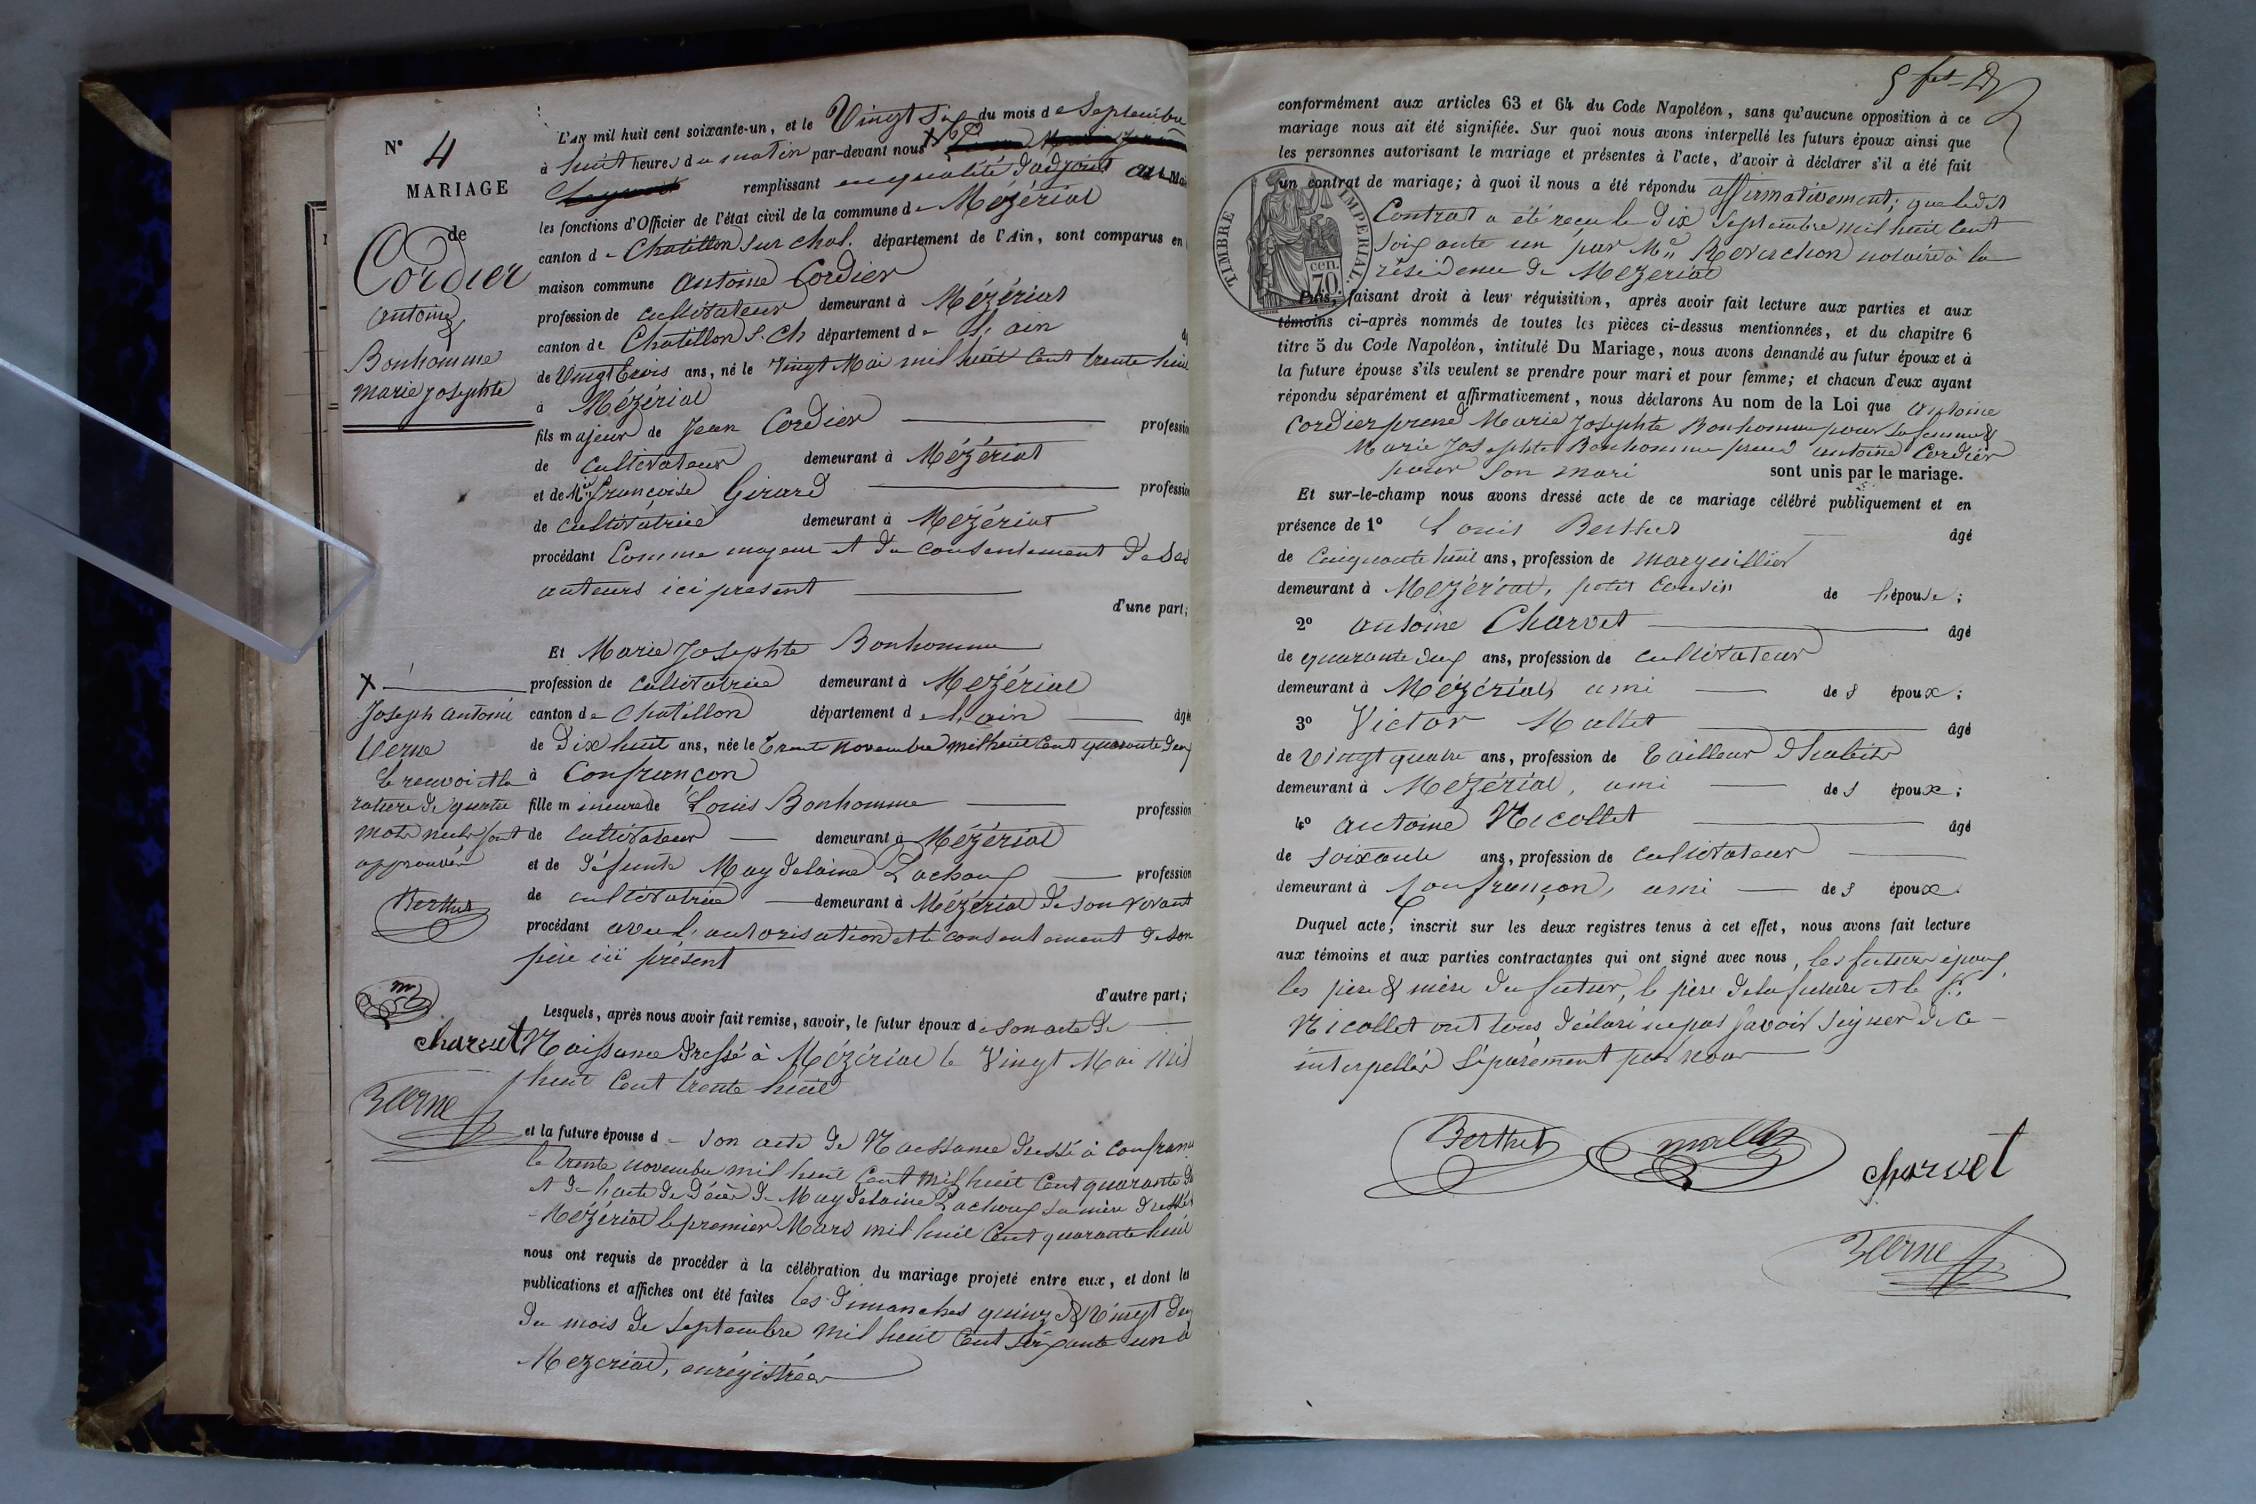 N° 4
MARIAGE
de
Cordier
antoine
&
Bonhomme
Marie Josephte
L'AN mil huit cent soixante-un, et le Vingt Six du mois de Septembre
à huit heures du matin par-devant nous X
remplissant en qualité d'adjoint au Mai
les fonctions d'Officier de l'état civil de la commune de Mézériat
canton de Chatillon sur Chal. département de l'Ain, sont comparus en
maison commune antoine Cordier
profession de cultivateur demeurant à Mézériat
canton de Chatillon S. Ch département de l'ain
de Vingt trois ans, né le vingt Mai mil huit Cent trente huit
à Mézériat
fils majeur de Jean Cordier profession
de cultivateur demeurant à Mézériat
et de Mie françoise Girard profession
de cultivatrice demeurant à Mézériat
procédant Comme majeur et du consentement de ses
auteurs ici présent
d'une part;
Et Marie Josephte Bonhomme
profession de cultivatrice demeurant à Mézériat
canton de Chatillon département de l'ain âgée
de Dix huit ans, née le trente novembre mil huit Cent quarante deux
à Confrançon
fille mineure de Louis Bonhomme profession
de cultivateur demeurant à Mézériat
et de défunte Magdelaine Pachoux profession
de cultivatrice demeurant à Mézériat de son vivant
procédant avec l'autorisation et le consentement de son
père ici présent
d'autre part;
X
Joseph antoine
Verne
le renvoi et la
rature de quatre
mots nuls sont
approuvés
Berthet
charvet
Verne
Lesquels, après nous avoir fait remise, savoir, le futur époux de son acte de
Naissance dressé à Mézériat le Vingt Mai Mil
huit Cent trente huit
et la future épouse de son acte de Naissance dressé à Confran
le trente novembre mil huit Cent mil huit Cent quarante d
et de l'acte de décès de Magdelaine Pachoux sa mère dressé à
Mézériat le premier Mars mil huit Cent quarante huit
nous ont requis de procéder à la célébration du mariage projeté entre eux, et dont les
publications et affiches ont été faites les dimanches quinze & vingt deux
du mois de Septembre mil huit Cent soixante un à
Mezeriat, enrégistrées
conformément aux articles 63 et 64 du Code Napoléon, sans qu'aucune opposition à ce
mariage nous ait été signifiée. Sur quoi nous avons interpellé les futurs époux ainsi que
les personnes autorisant le mariage et présentes à l'acte, d'avoir à déclarer s'il a été fait
un contrat de mariage; à quoi il nous a été répondu affirmativement; que ledit
Contrat a été reçu le dix Septembre mil huit Cent
soixante un par Me Reverchon notaire à la
résidence de Mezeriat
TIMBRE IMPÉRIAL.
70 cen.
Puis, faisant droit à leur réquisition, après avoir fait lecture aux parties et aux
témoins ci-après nommés de toutes les pièces ci-dessus mentionnées, et du chapitre 6
titre 5 du Code Napoléon, intitulé Du Mariage, nous avons demandé au futur époux et à
la future épouse s'ils veulent se prendre pour mari et pour femme; et chacun d'eux ayant
répondu séparément et affirmativement, nous déclarons Au nom de la Loi que antoine
Cordier prend Marie Josephte Bonhomme pour sa femme &
Marie Josephte Bonhomme prend antoine Cordier
pour son mari sont unis par le mariage.
Et sur-le-champ nous avons dressé acte de ce mariage célébré publiquement et en
présence de 1° Louis Berthet âgé
de Cinquante huit ans, profession de marguillier
demeurant à Mézériat, petit cousin de l'épouse;
2° antoine Charvet âgé
de quarante deux ans, profession de cultivateur
demeurant à Mézériat, ami des époux;
3° Victor Mallet âgé
de vingt quatre ans, profession de tailleur d'habits
demeurant à Mézériat, ami des époux;
4° antoine Nicollet âgé
de soixante ans, profession de cultivateur
demeurant à Confrançon, ami des époux
Duquel acte, inscrit sur les deux registres tenus à cet effet, nous avons fait lecture
aux témoins et aux parties contractantes qui ont signé avec nous, les futurs époux
les père & mère du futur, le père de la future et le Sr.
Nicollet ont tous déclaré ne pas savoir signer de ce
interpellés séparément par nous
Berthet mallet
charvet
Verne